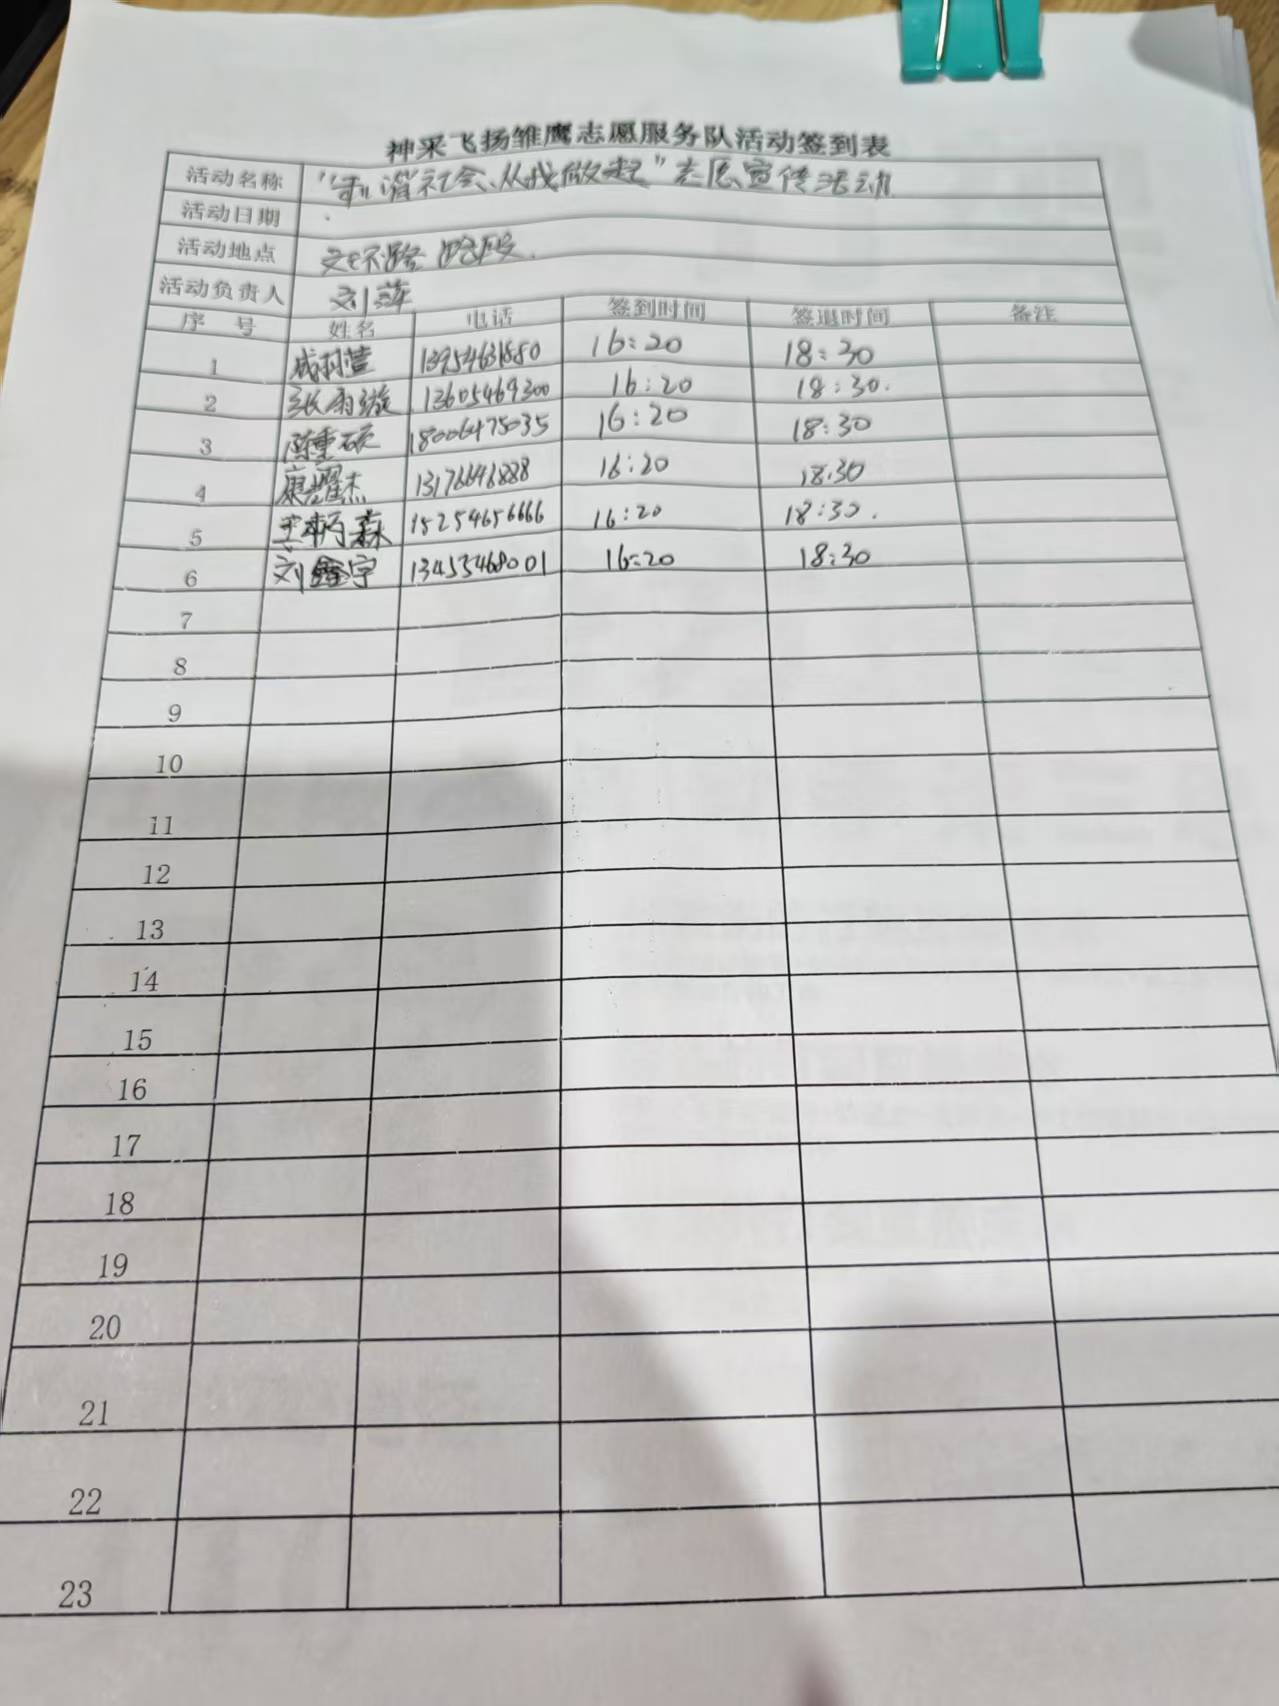 神采飞扬雏鹰志愿服务队活动签到表
活动名称 "和谐社会、从我做起"志愿宣传活动
活动日期
活动地点 路段.
活动负责人 刘萍
序 号 姓名 电话 签到时间 签退时间 备注
1 13954631880 16:20 18:30
2 张雨璇 13605469300 16:20 18:30.
3 陈重硕 18006475035 16:20 18:30
4 康耀杰 13176646888 16:20 18:30
5 李柄森 15254656666 16:20 18:30.
6 刘鑫宇 13453468001 16:20 18:30
7
8
9
10
11
12
13
14
15
16
17
18
19
20
21
22
23